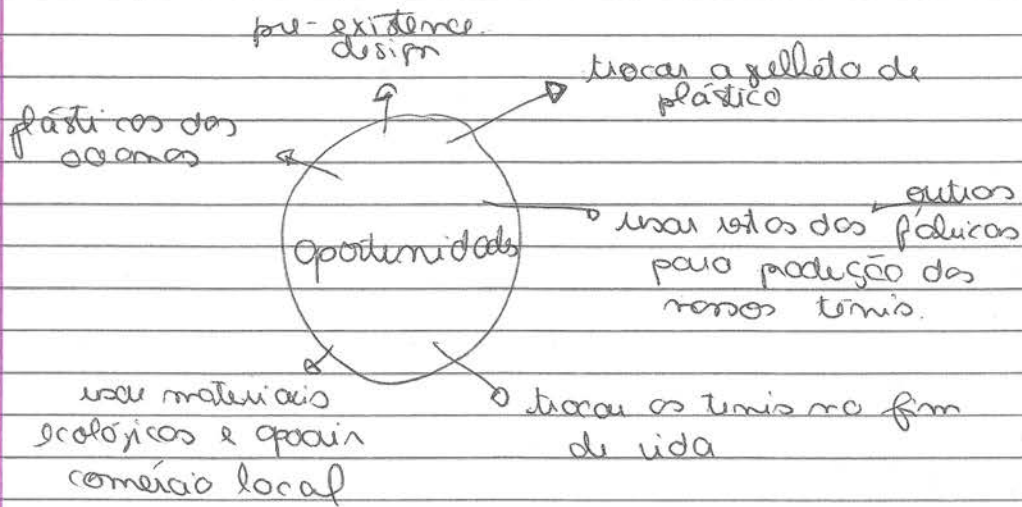 pre-existence
design
trocar a palheta de
plástico
plásticos dos
oceanos
outras
usar restos das fábricas
para produção dos
nossos ténis.
oportunidades
usar materiais
ecológicos e apoiar
comércio local
trocar os ténis no fim
de vida